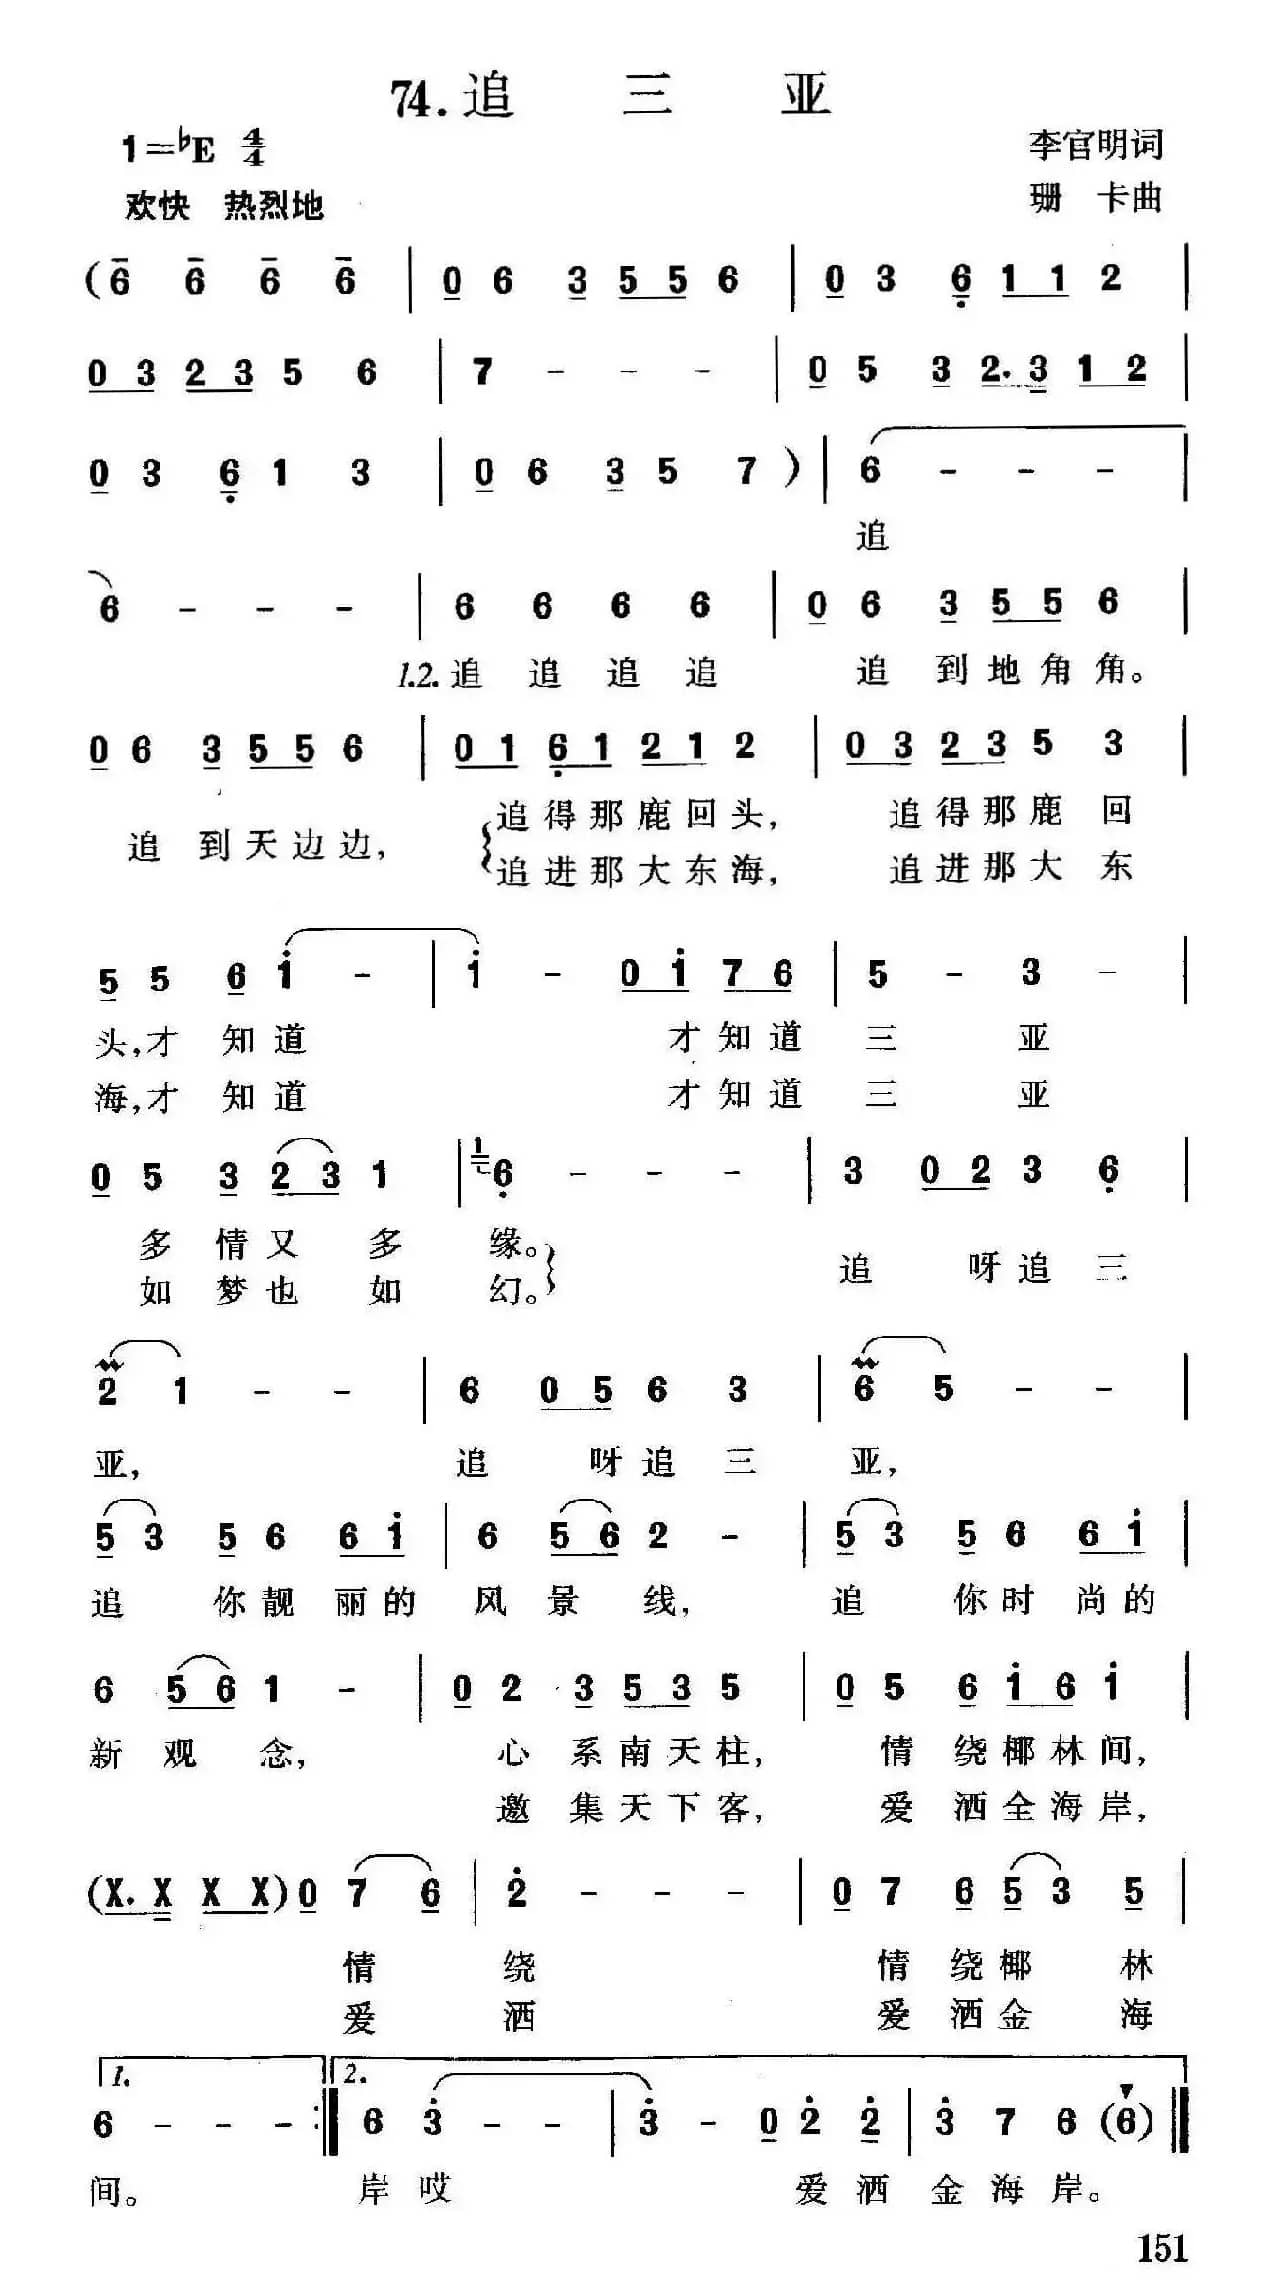 74.追 三 亚
1=♭E 4/4
李官明词
欢快 热烈地
珊 卡曲
(6 6 6 6 | 0 6 3 5 5 6 | 0 3 6 1 1 2 |
0 3 2 3 5 6 | 7 - - - | 0 5 3 2. 3 1 2 |
0 3 6 1 3 | 0 6 3 5 7 ) | 6 - - - |
追
6 - - - | 6 6 6 6 | 0 6 3 5 5 6 |
1.2.追 追 追 追 追 到 地 角 角。
0 6 3 5 5 6 | 0 1 6 1 2 1 2 | 0 3 2 3 5 3 |
追 到 天 边 边, 追 得 那 鹿 回 头, 追 得 那 鹿 回
追 进 那 大 东 海, 追 进 那 大 东
5 5 6 i - | i - 0 i 7 6 | 5 - 3 - |
头,才 知 道 才 知 道 三 亚
海,才 知 道 才 知 道 三 亚
0 5 3 2 3 1 | 1 6 - - - | 3 0 2 3 6 |
多 情 又 多 缘。 追 呀 追 三
如 梦 也 如 幻。
2 1 - - | 6 0 5 6 3 | 6 5 - - |
亚, 追 呀 追 三 亚,
5 3 5 6 6 i | 6 5 6 2 - | 5 3 5 6 6 i |
追 你 靓 丽 的 风 景 线, 追 你 时 尚 的
6 5 6 1 - | 0 2 3 5 3 5 | 0 5 6 i 6 i |
新 观 念, 心 系 南 天 柱, 情 绕 椰 林 间,
邀 集 天 下 客, 爱 洒 全 海 岸,
(X. X X X) 0 7 6 | 2 - - - | 0 7 6 5 3 5 |
情 绕 情 绕 椰 林
爱 洒 爱 洒 金 海
1. 2.
6 - - - :‖ 6 3 - - | 3 - 0 2 2 | 3 7 6 (6) ‖
间。 岸 哎 爱 洒 金 海 岸。
151